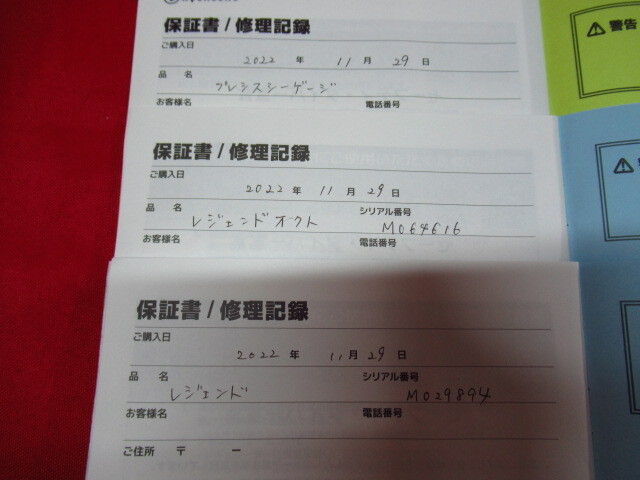 保証書/修理記録
ご購入日
2022 年 11 月 29 日
品 名
プレシスシーゲージ
お客様名 電話番号
警告
保証書/修理記録
ご購入日
2022 年 11 月 29 日
品 名 シリアル番号
レジェンドオクト M064616
お客様名 電話番号
保証書/修理記録
ご購入日
2022 年 11 月 29 日
品 名 シリアル番号
レジェンド M029894
お客様名 電話番号
ご住所 〒 ー